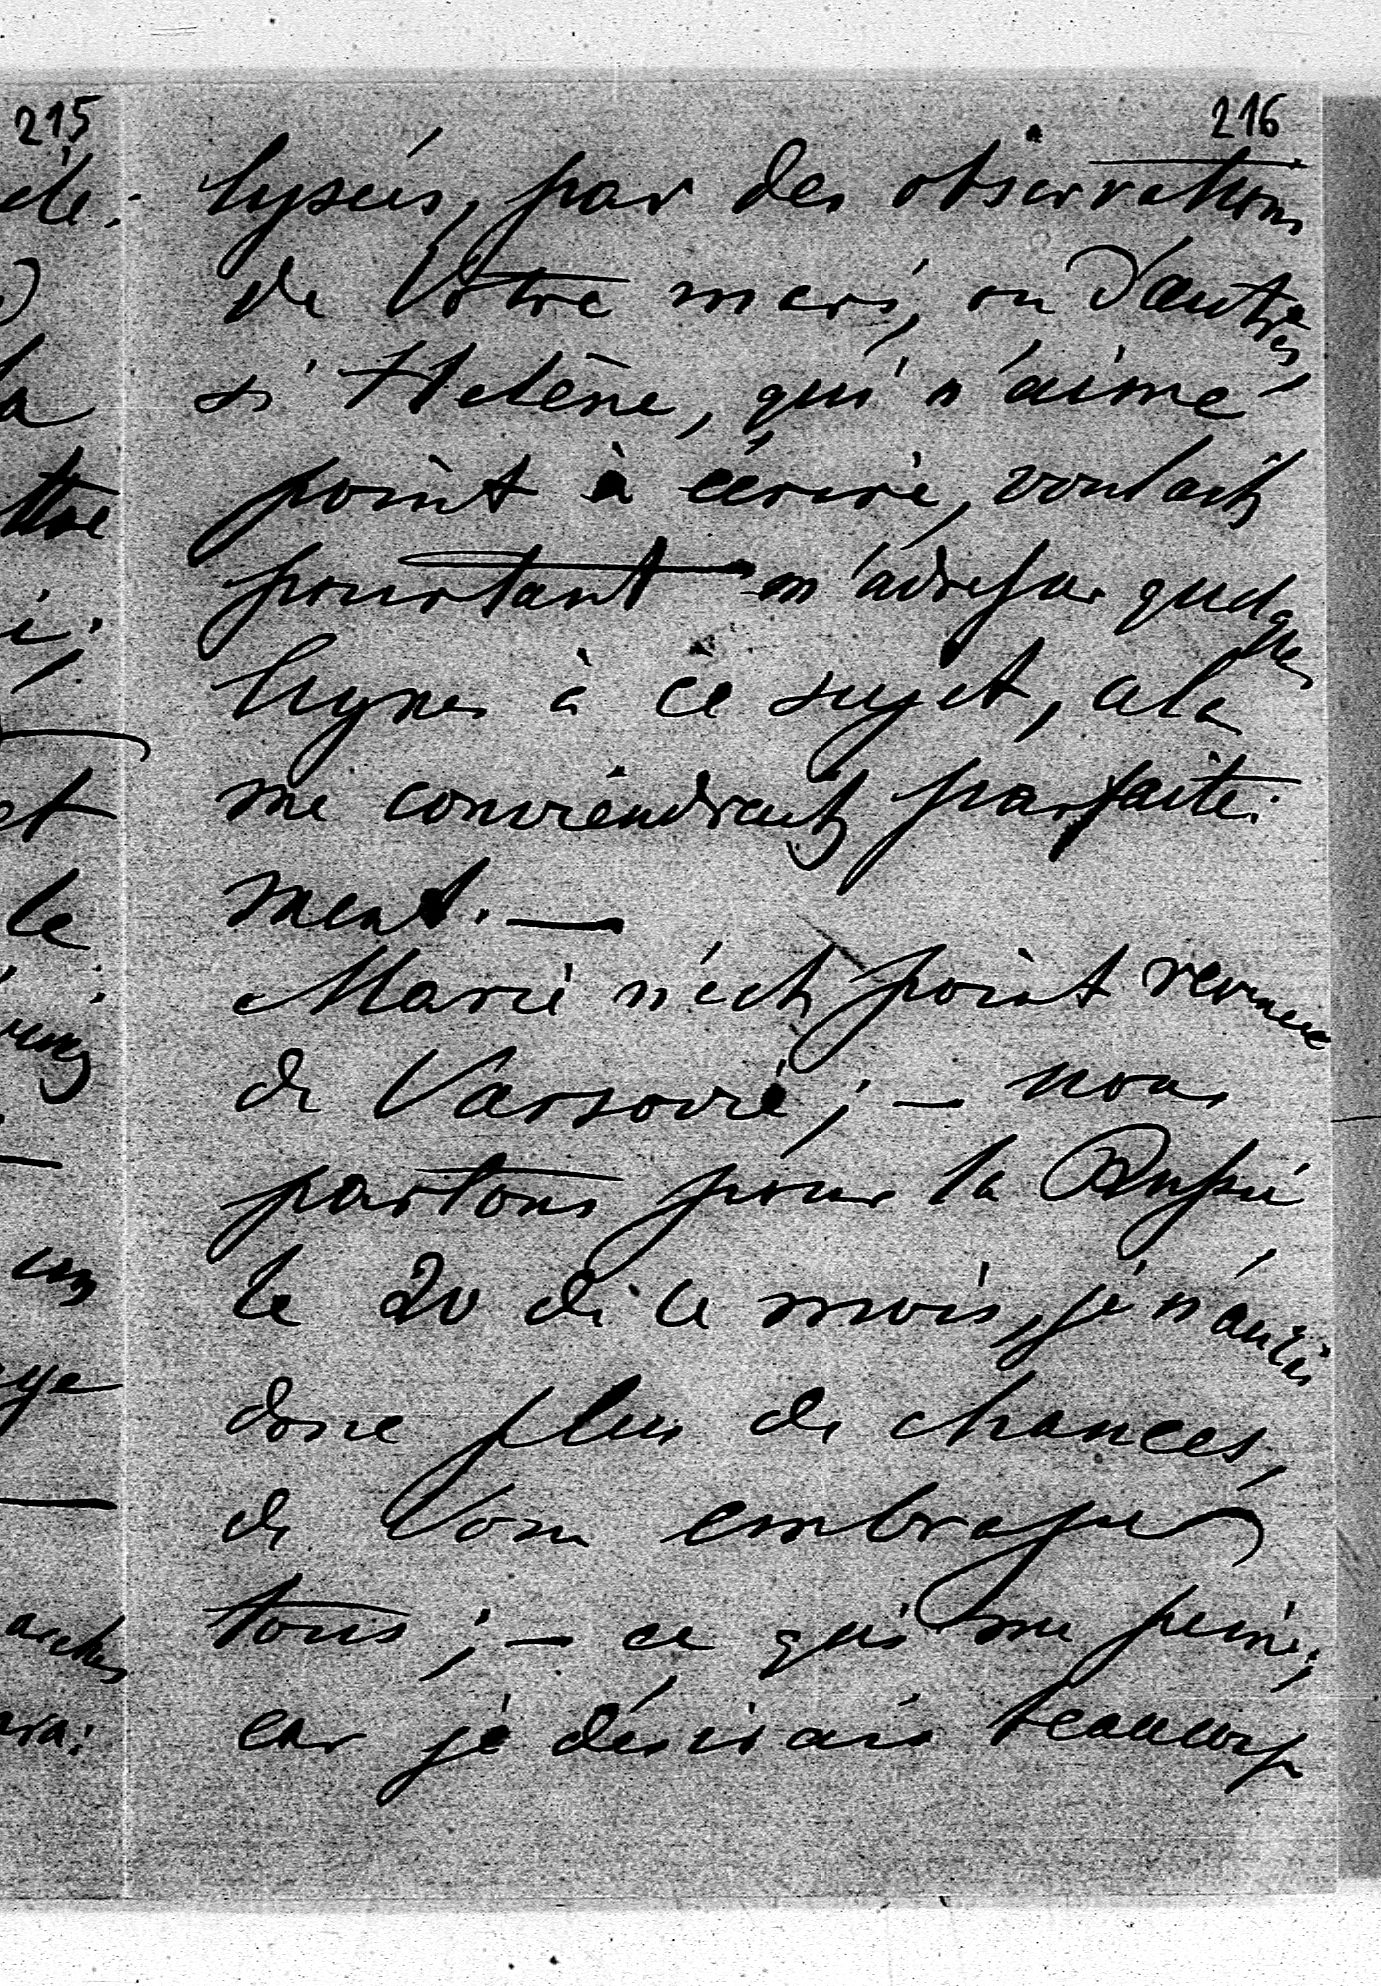 215
216
lysées, par des observations
de Votre mari, ou d'autres,
si Hélène, qui n'aime
point à écrire, voulait
pourtant m'adresser quelques
lignes à ce sujet, cela
me conviendrait parfaite:
ment. —
Marie n'est point revenue
de Varsovie; — nous
partons pour la Russie
le 20 de ce mois, je n'aurais
donc plus de chances,
de Vous embrasser
tous; — ce qui me peine;
car je désirais beaucoup